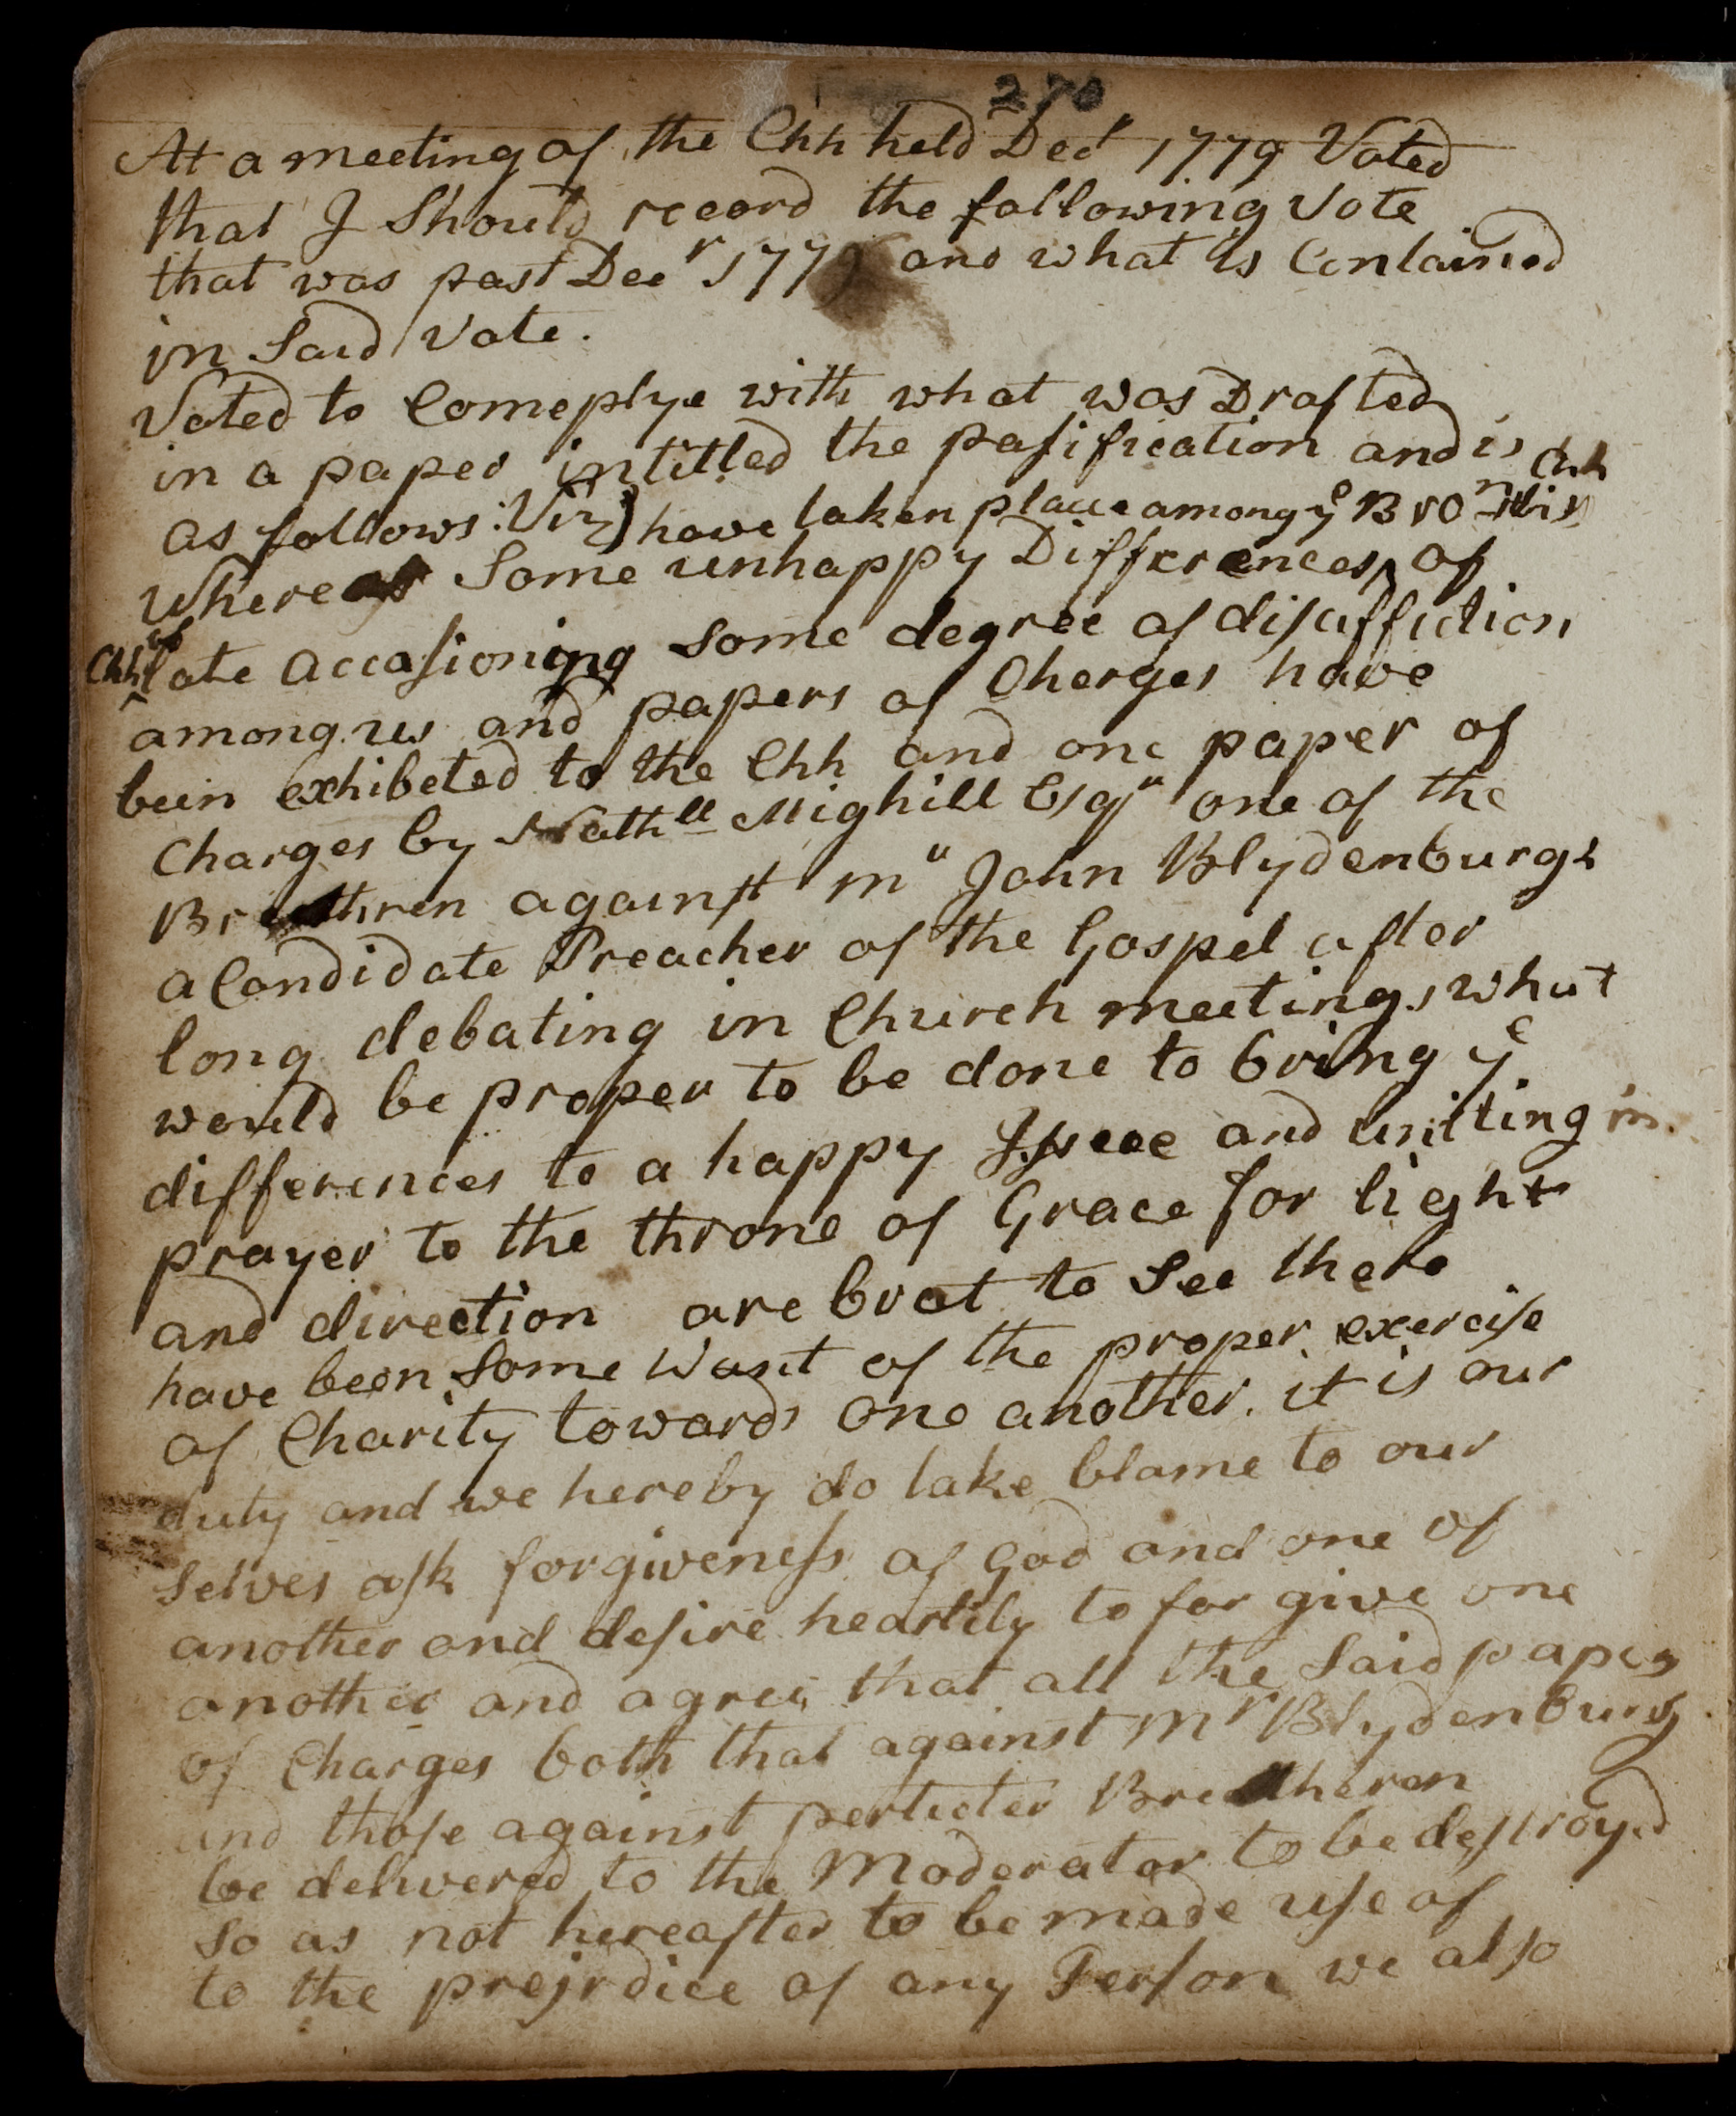 270
At a meeting of the Chh held Decr 1779 Voted
that I Should record the following Vote
that was past Decr 177 and what is Contained
in Said Vote.
Voted to Comeplye with what was Drafted
in a paper intitled the pasification and is
as follows: Viz) have taken place among ye Brorn in this Chh
Whereas Some unhappy Differences, of
Chh of late accasioning some degree of disaffection
among us and papers of Cherges have
been exhibeted to the Chh and one paper of
Charges by Nathll Mighill Esqr one of the
Breathren against mr John Blydenburgh
a Candidate Preacher of the Gospel after
long debating in Church meetings what
would be proper to be done to bring ye
differences to a happy Issue and uniting in
prayer to the throne of Grace for light
and direction are brot to See there
have been Some Want of the proper exercise
of Charity towards one another. it is our
duty and we hereby do take blame to our
Selves ask forgiveness of God and one of
another and desire heartily to for give one
another and agree that all the Said papers
of Charges both that against Mr Blydenburg
and those against perticler Breatheren
be delivered to the Moderator to be destroyed
So as not hereafter to be made use of
to the prejrdice of any Person we also